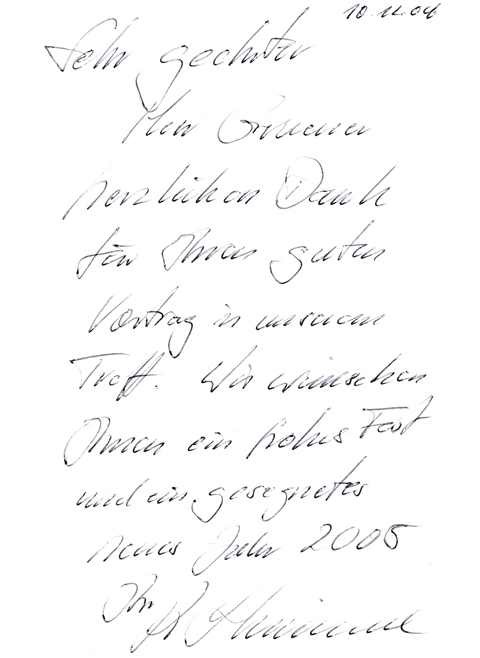 10.12.04
Sehr geehrter
Herr
herzlichen Dank
für Ihren guten
Vortrag in unserem
Treff. Wir wünschen
Ihnen ein frohes Fest
und ein gesegnetes
neues Jahr 2005
Ihr